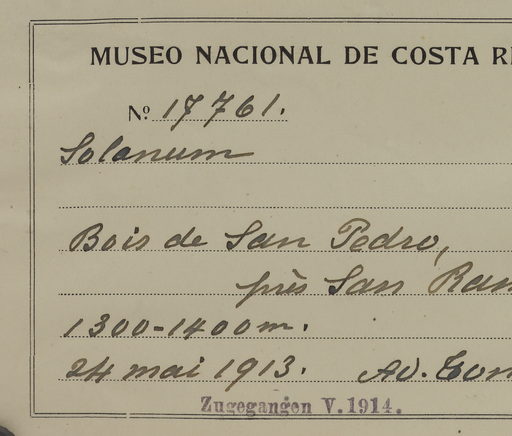 MUSEO NACIONAL DE COSTA
Nº 17761.
Solanum
Bois de San Pedro,
près San
1300-1400m.
24 mai 1913. Ad.
Zugegangen V.1914.